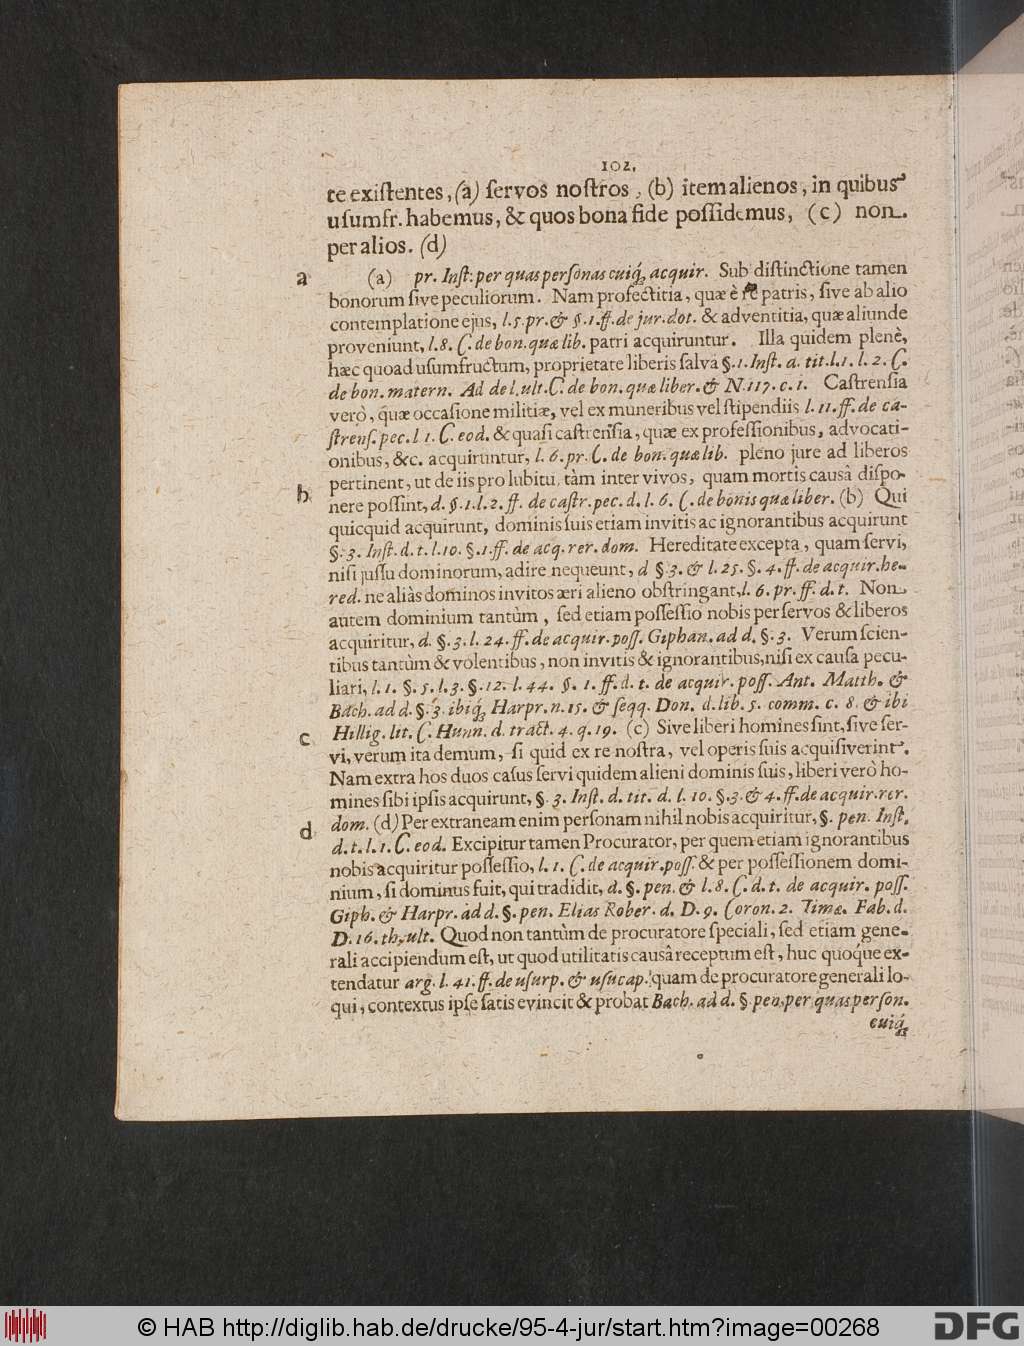 102.
te existentes, (a) servos nostros, (b) item alienos, in quibus
usumfr. habemus, & quos bona fide possidemus, (c) non
per alios. (d)
a (a) pr. Inst: per quas personas cuiq́; acquir. Sub distinctione tamen
bonorum sive peculiorum. Nam profectitia, quæ è re patris, sive ab alio
contemplatione ejus, l. 5. pr. & §. 1. ff. de jur. dot. & adventitia, quæ aliunde
proveniunt, l. 8. C. de bon. quæ lib. patri acquiruntur. Illa quidem plenè,
hæc quoad usumfructum, proprietate liberis salvâ §. 1. Inst. d. tit. l. 1. l. 2. C.
de bon. matern. Ad de l. ult. C. de bon. quæ liber. & N. 117. c. 1. Castrensia
verò, quæ occasione militiæ, vel ex muneribus vel stipendiis l. 11. ff. de ca-
strens. pec. l 1. C. eod. & quasi castrensia, quæ ex professionibus, advocati-
onibus, &c. acquiruntur, l. 6. pr. C. de bon. quæ lib. pleno jure ad liberos
b pertinent, ut de iis pro lubitu, tàm inter vivos, quam mortis causâ dispo-
nere possint, d. §. 1. l. 2. ff. de castr. pec. d. l. 6. C. de bonis quæ liber. (b) Qui
quicquid acquirunt, dominis suis etiam invitis ac ignorantibus acquirunt
§. 3. Inst. d. t. l. 10. §. 1. ff. de acq. rer. dom. Hereditate excepta, quam servi,
nisi jussu dominorum, adire nequeunt, d §. 3. & l. 25. §. 4. ff. de acquir. he-
red. ne aliàs dominos invitos æri alieno obstringant, l. 6. pr. ff. d. t. Non
autem dominium tantùm, sed etiam possessio nobis per servos & liberos
acquiritur, d. §. 3. l. 24. ff. de acquir. poss. Giphan. ad d. §. 3. Verum scien-
tibus tantùm & volentibus, non invitis & ignorantibus, nisi ex causa pecu-
liari, l. 1. §. 5. l. 3. §. 12. l. 44. §. 1. ff. d. t. de acquir. poss. Ant. Matth. &
Bach. ad d. §. 3. ibiq́; Harpr. n. 15. & seqq. Don. d. lib. 5. comm. c. 8. & ibi
c Hillig. lit. C. Hunn. d. tract. 4. q. 19. (c) Sive liberi homines sint, sive ser-
vi, verum ita demum, si quid ex re nostra, vel operis suis acquisiverint.
Nam extra hos duos casus servi quidem alieni dominis suis, liberi verò ho-
mines sibi ipsis acquirunt, §. 3. Inst. d. tit. d. l. 10. §. 3. & 4. ff. de acquir. rer.
d dom. (d) Per extraneam enim personam nihil nobis acquiritur, §. pen. Inst.
d. t. l. 1. C. eod. Excipitur tamen Procurator, per quem etiam ignorantibus
nobis acquiritur possessio, l. 1. C. de acquir. poss. & per possessionem domi-
nium, si dominus fuit, qui tradidit, d. §. pen. & l. 8. C. d. t. de acquir. poss.
Giph. & Harpr. ad d. §. pen. Elias Rober. d. D. 9. Coron. 2. Timæ. Fab. d.
D. 16. th. ult. Quod non tantùm de procuratore speciali, sed etiam gene-
rali accipiendum est, ut quod utilitatis causâ receptum est, huc quoque ex-
tendatur arg. l. 41. ff. de usurp. & usucap. quam de procuratore generali lo-
qui, contextus ipse satis evincit & probat Bach. ad d. § pen. per quas person.
cuiq́;
© HAB http://diglib.hab.de/drucke/95-4-jur/start.htm?image=00268
DFG